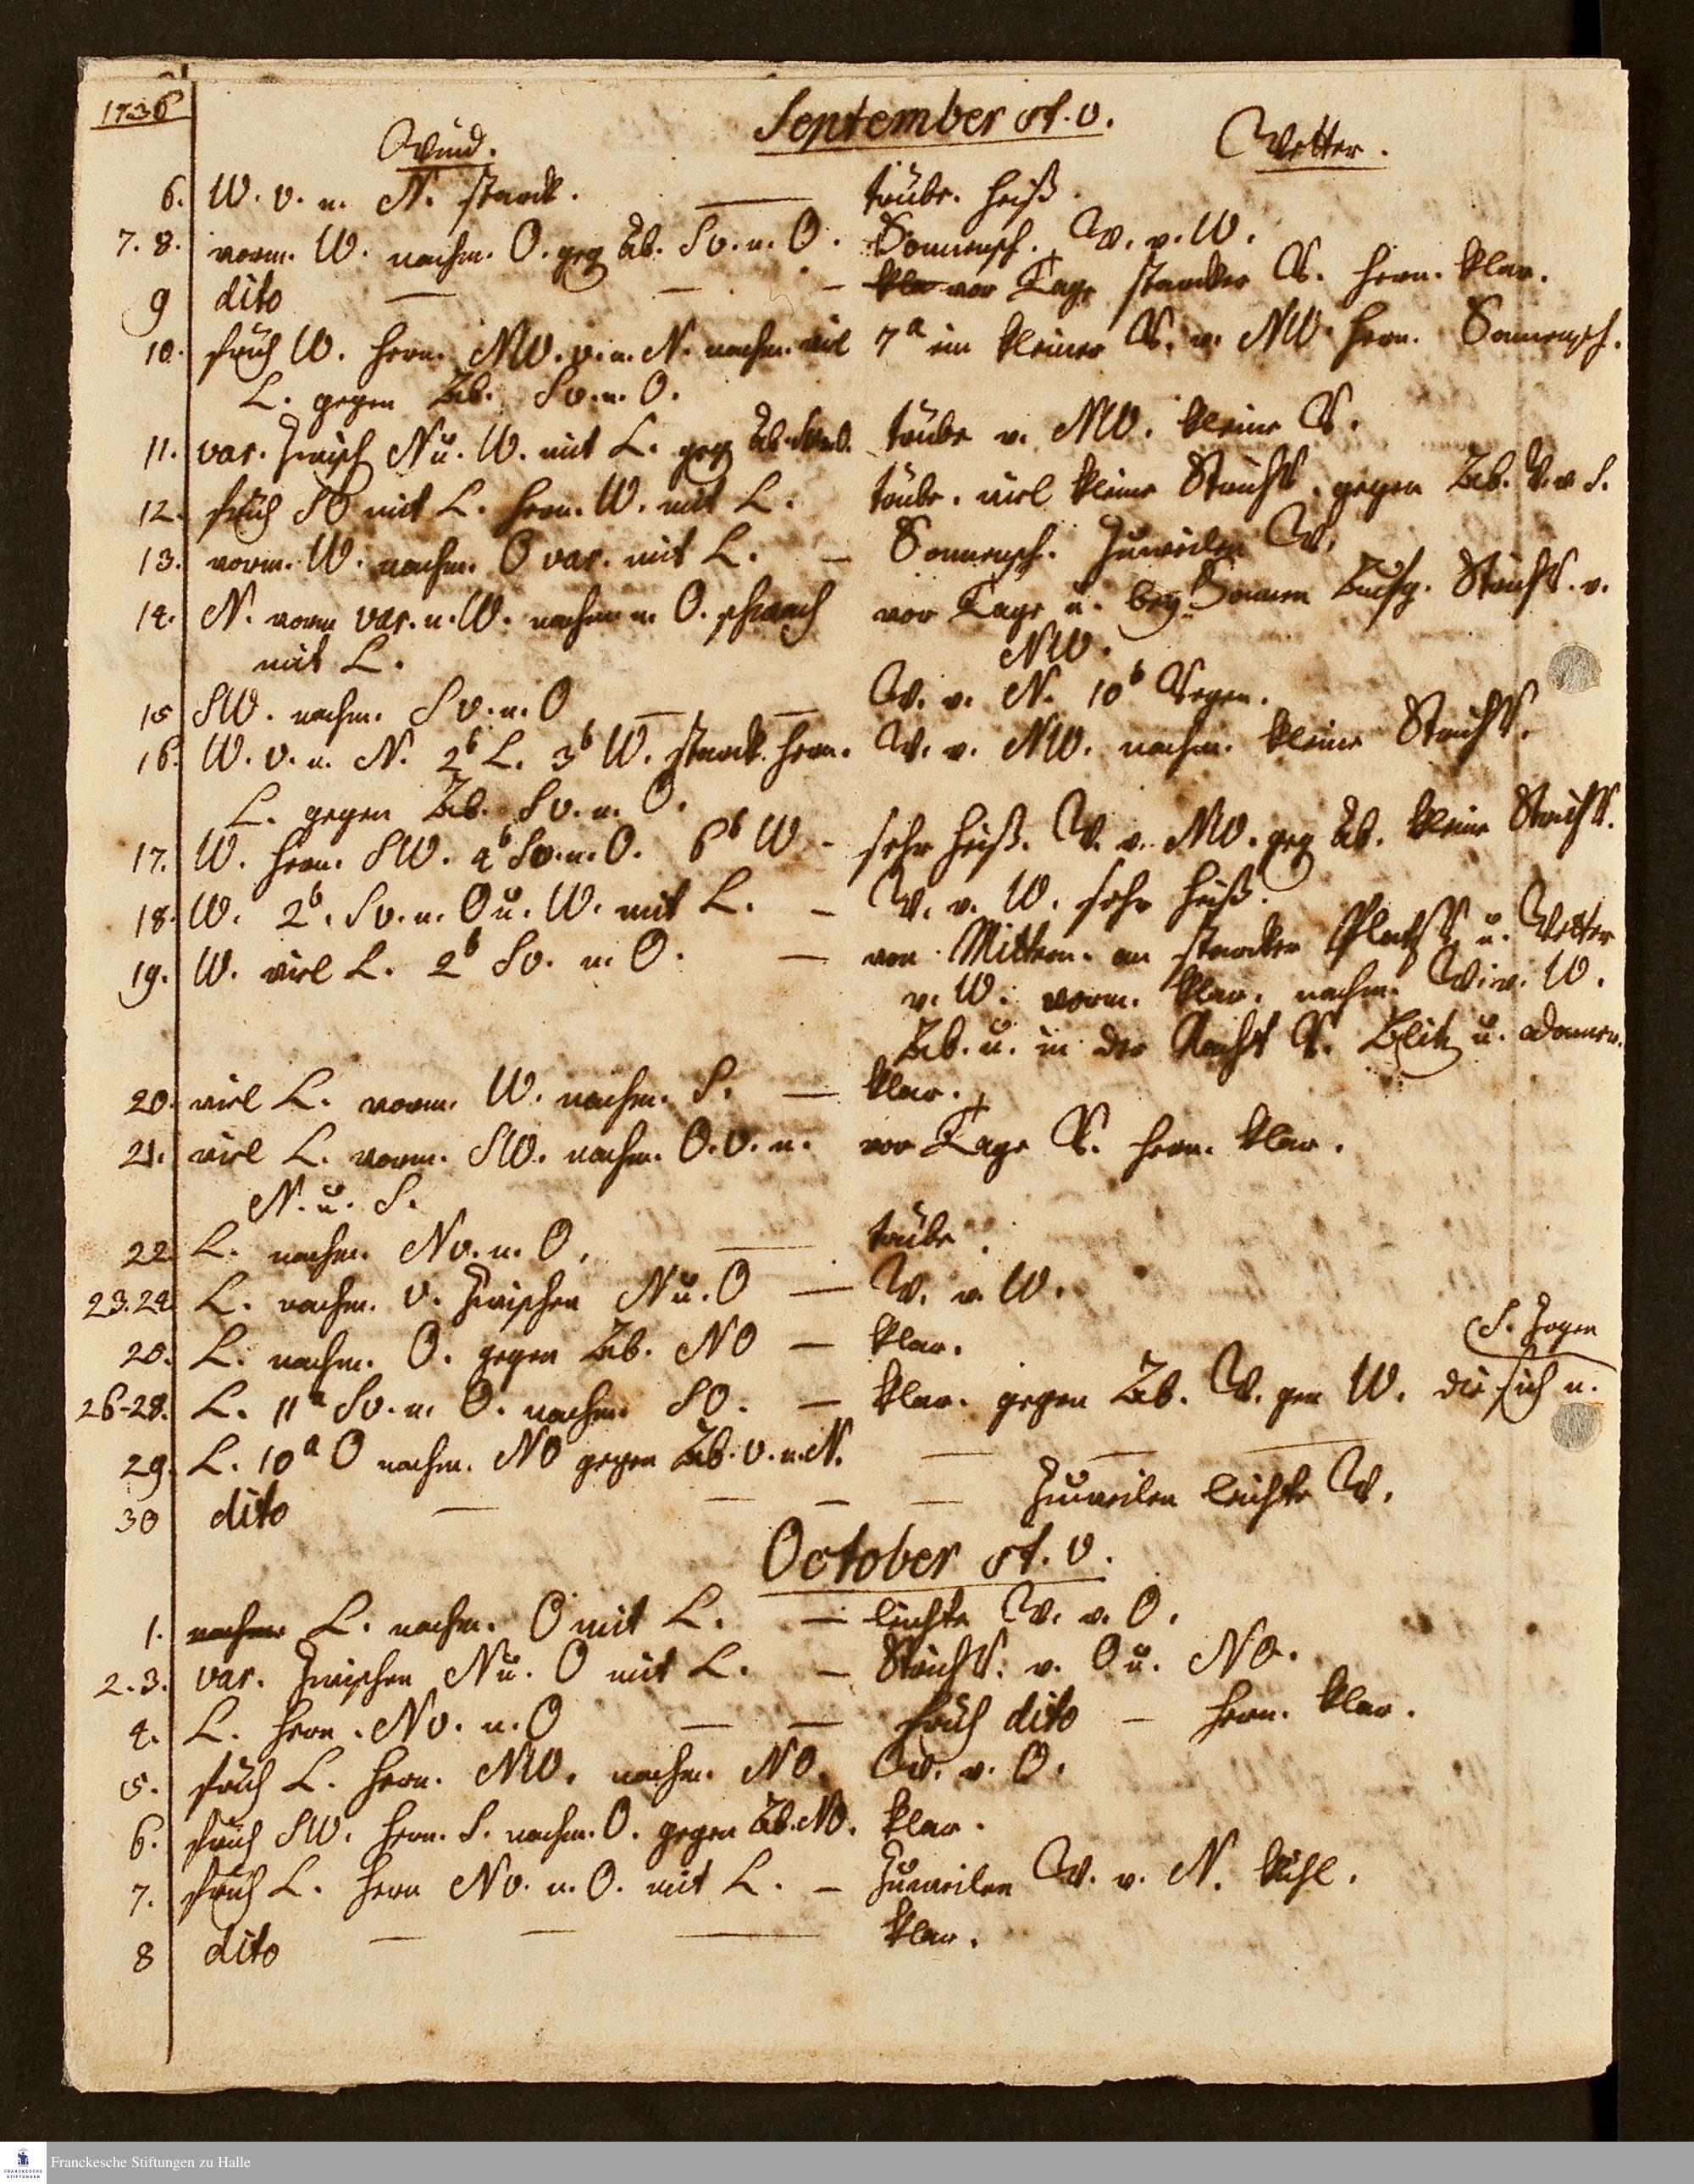 1736
September st. v.
Wind. Wetter.
6. W. v. u. N. starck. — trübe. heiß.
7. 8. vorm. W. nachm. O. geg Ab. S v. u. O. Sonnensch. W. v. W.
9 dito — — — vor Tage starcker R. hern. klar.
10. früh W. hern. NW. v. u. N. nachm. viel 7a ein kleiner R. v. NW. hern. Sonnensch.
L. gegen Ab. S v. u. O.
11. var. zwisch N u. W. mit L. geg Ab. trübe v. NW. kleine R.
12. früh SO mit L. hern. W. mit L. trübe. viel kleine StrichR. gegen Ab. W. v. S.
13. vorm. W. nachm. O var. mit L. — Sonnensch. zuweilen W.
14. N. vorm var. u. W. nachm u. O. schwach vor Tage u. bey Sonnen Aufg. StrichR. v.
mit L. NW.
15 SW. nachm. S v. u. O — — W. v. N. 10b Regen.
16. W. v. u. N. 2b L. 3b W. starck. hern. W. v. NW. nachm. kleine StrichR.
L. gegen Ab. S v. u. O.
17. W. hern. SW. 4b S v. u. O. 6b W - sehr heiß. W. v. NW. geg Ab. kleine StrichR.
18. W. 2b. S v. u. O u. W. mit L. — W. v. W. sehr heiß.
19. W. viel L. 2b S v. u. O. — von Mittern. an starcker PlatzR. u. Wetter
v. W. vorm. klar. nachm. W. v. W.
Ab. u. in der Nacht R. Blitz u. Donner.
20. viel L. vorm. W. nachm. S. — klar.
21. viel L. vorm. SW. nachm. O. v. u. vor Tage R. hern. klar.
N. u. S.
22. L. nachm. N v. u. O. — trübe.
23. 24. L. nachm. v. zwischen N u. O — W. v. W.
25. L. nachm. O. gegen Ab. NO — klar.
S. zogen
26-28. L. 11a S v. u. O. nachm. SO. — klar. gegen Ab. W. gen W. die sich n.
29. L. 10a O nachm. NO gegen Ab. v. u. N. — — —
30 dito — — — — zuweilen leichte W.
October st. v.
1. nachm L. nachm. O mit L. — leichte W. v. O.
2. 3. var. zwischen N u. O mit L. — StrichR. v. O u. NO.
4. L. hern. N v. u. O — — früh dito — hern. klar.
5. früh L. hern. NW. nachm. NO. W. v. O.
6. früh SW. hern. S. nachm. O. gegen Ab. NO. klar.
7. früh L. hern N v. u. O. mit L. — zuweilen W. v. N. kühl.
8 dito — — — klar.
Franckesche Stiftungen zu Halle